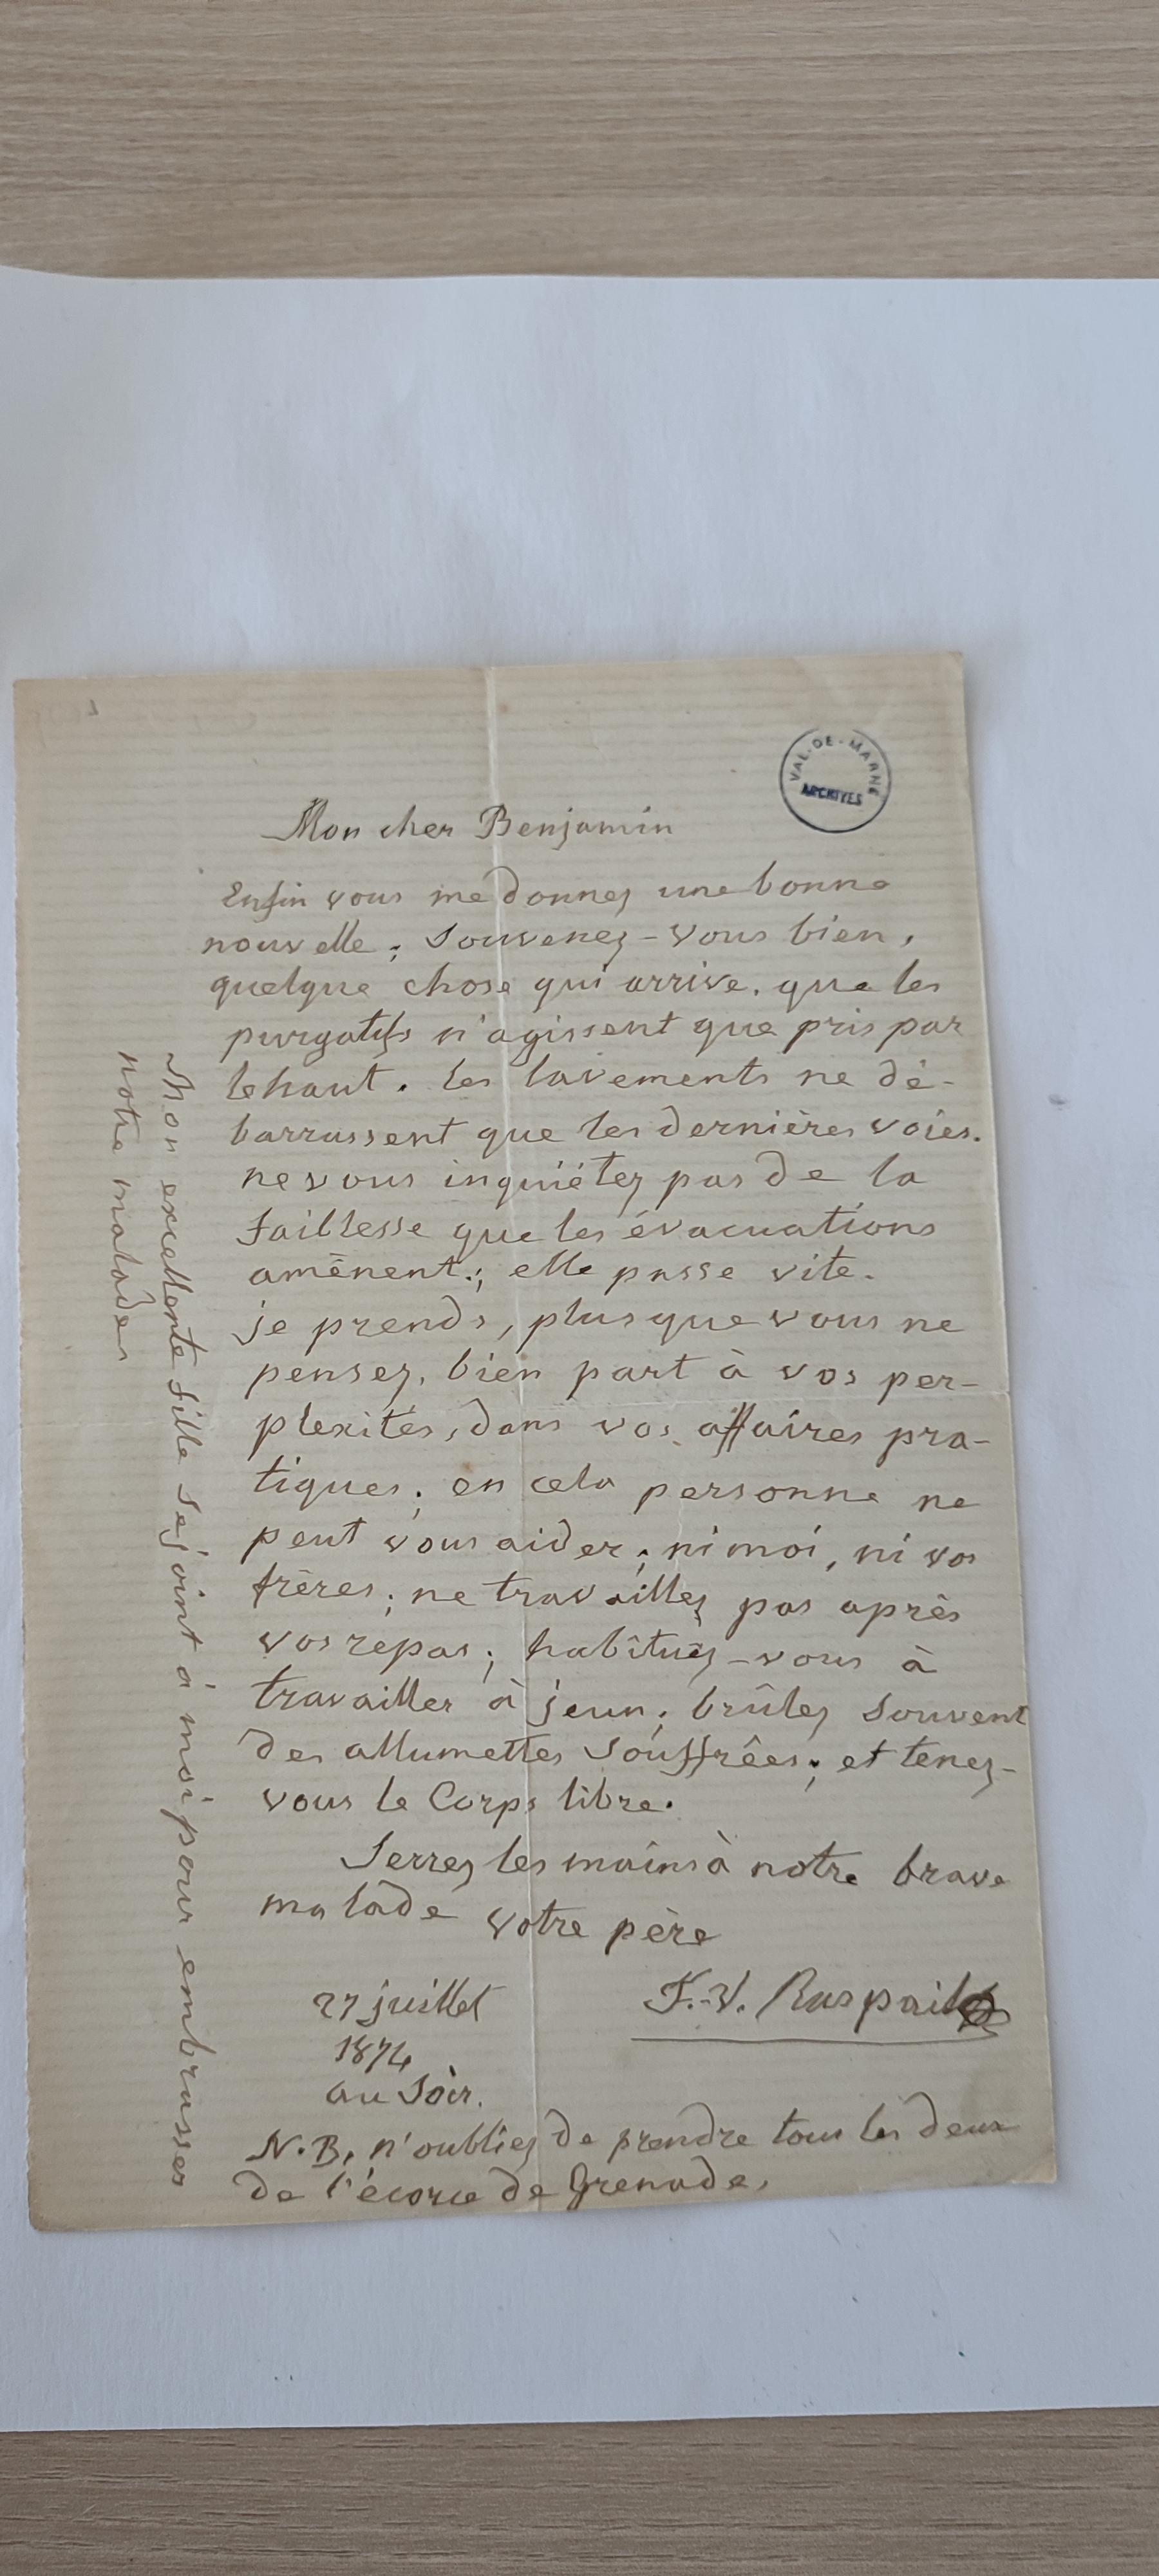 VAL-DE-MARNE
ARCHIVES
Mon cher Benjamin
Enfin vous me donnez une bonne
nouvelle ; Souvenez-vous bien,
quelque chose qui arrive, que les
purgatifs n'agissent que pris par
le haut. les lavements ne dé-
barrassent que les dernières voies.
ne vous inquiétez pas de la
faiblesse que les évacuations
amênent ; elle passe vite.
je prends, plus que vous ne
pensez, bien part à vos per-
plexités, dans vos affaires pra-
tiques ; en cela personne ne
peut vous aider ; ni moi, ni vos
frères ; ne travaillez pas après
vos repas ; habituez-vous à
travailler à jeun ; brûlez souvent
des allumettes souffrées ; et tenez-
vous le Corps libre.
Serrez les mains à notre brave
malade
votre père
F.-V. Raspail
27 juillet
1874
au Soir.
N.B. n'oubliez de prendre tous les deux
de l'écorce de Grenade.
Mon excellente fille se joint à moi pour embrasser
notre malade